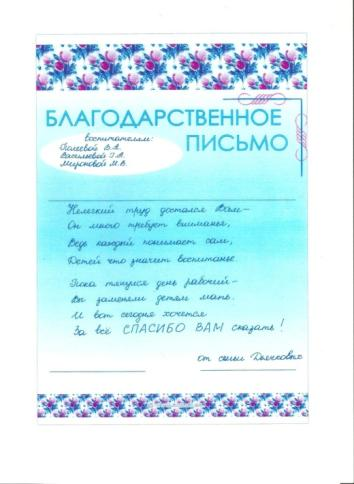 БЛАГОДАРСТВЕННОЕ
ПИСЬМО
воспитателям:
В.А.
Васильевой Г.А.
Мироновой М.В.
Нелегкий труд достался Вам–
Он много требует вниманья,
Ведь каждый понимает сам,
Детей что значит воспитанье.
Пока тянулся день рабочий–
Вы заменяли детям мать.
И вот сегодня хочется
За всё СПАСИБО ВАМ сказать!
от семьи Дьячковых